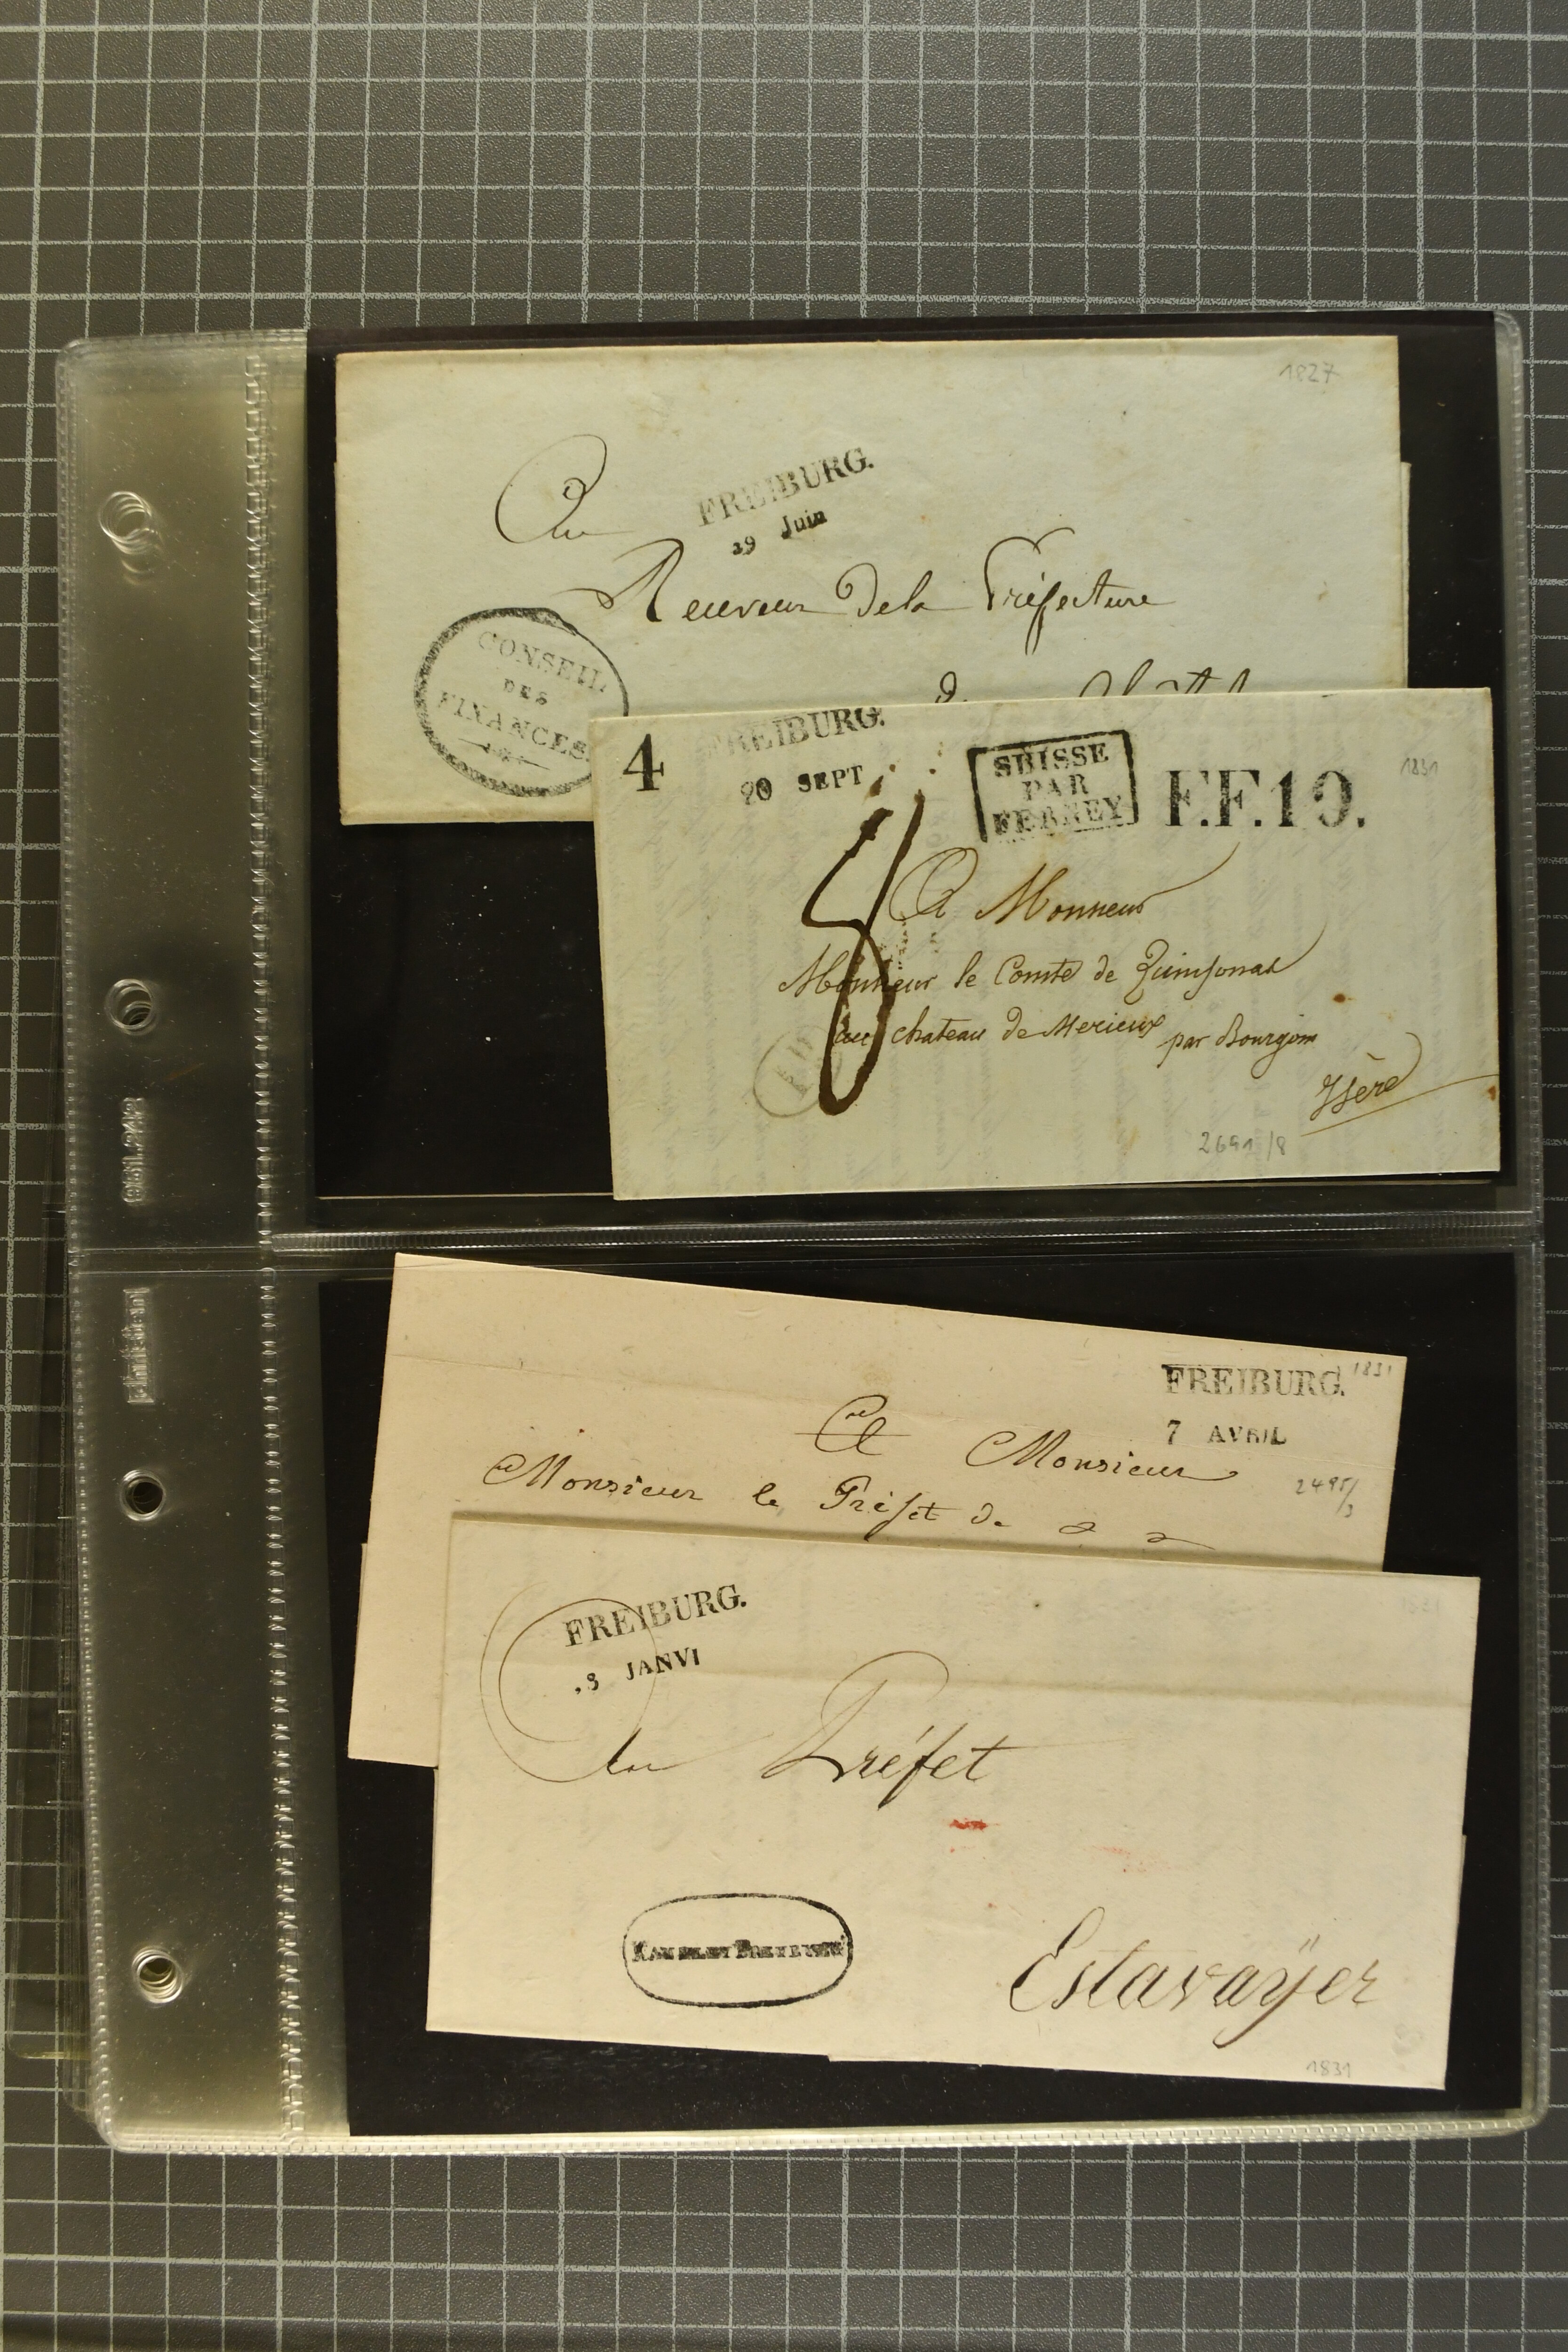 1827
FREIBURG.
19 Juin
Au
Receveur Dela Préfecture
CONSEIL
DES
FINANCES.
4
FREIBURG.
20 SEPT
SUISSE
PAR
FERNEY
F.F.19.
1831
A Monsieur
Monsieur le Comte de Quinsonas
au chateau de Merieux par Bourgoin
Isère
2691/8
FREIBURG.
1831
7 AVRIL
A Monsieur
2495/3
Monsieur le Préfet de
FREIBURG.
.8 JANVI
Au Préfet
Estavaÿer
1831